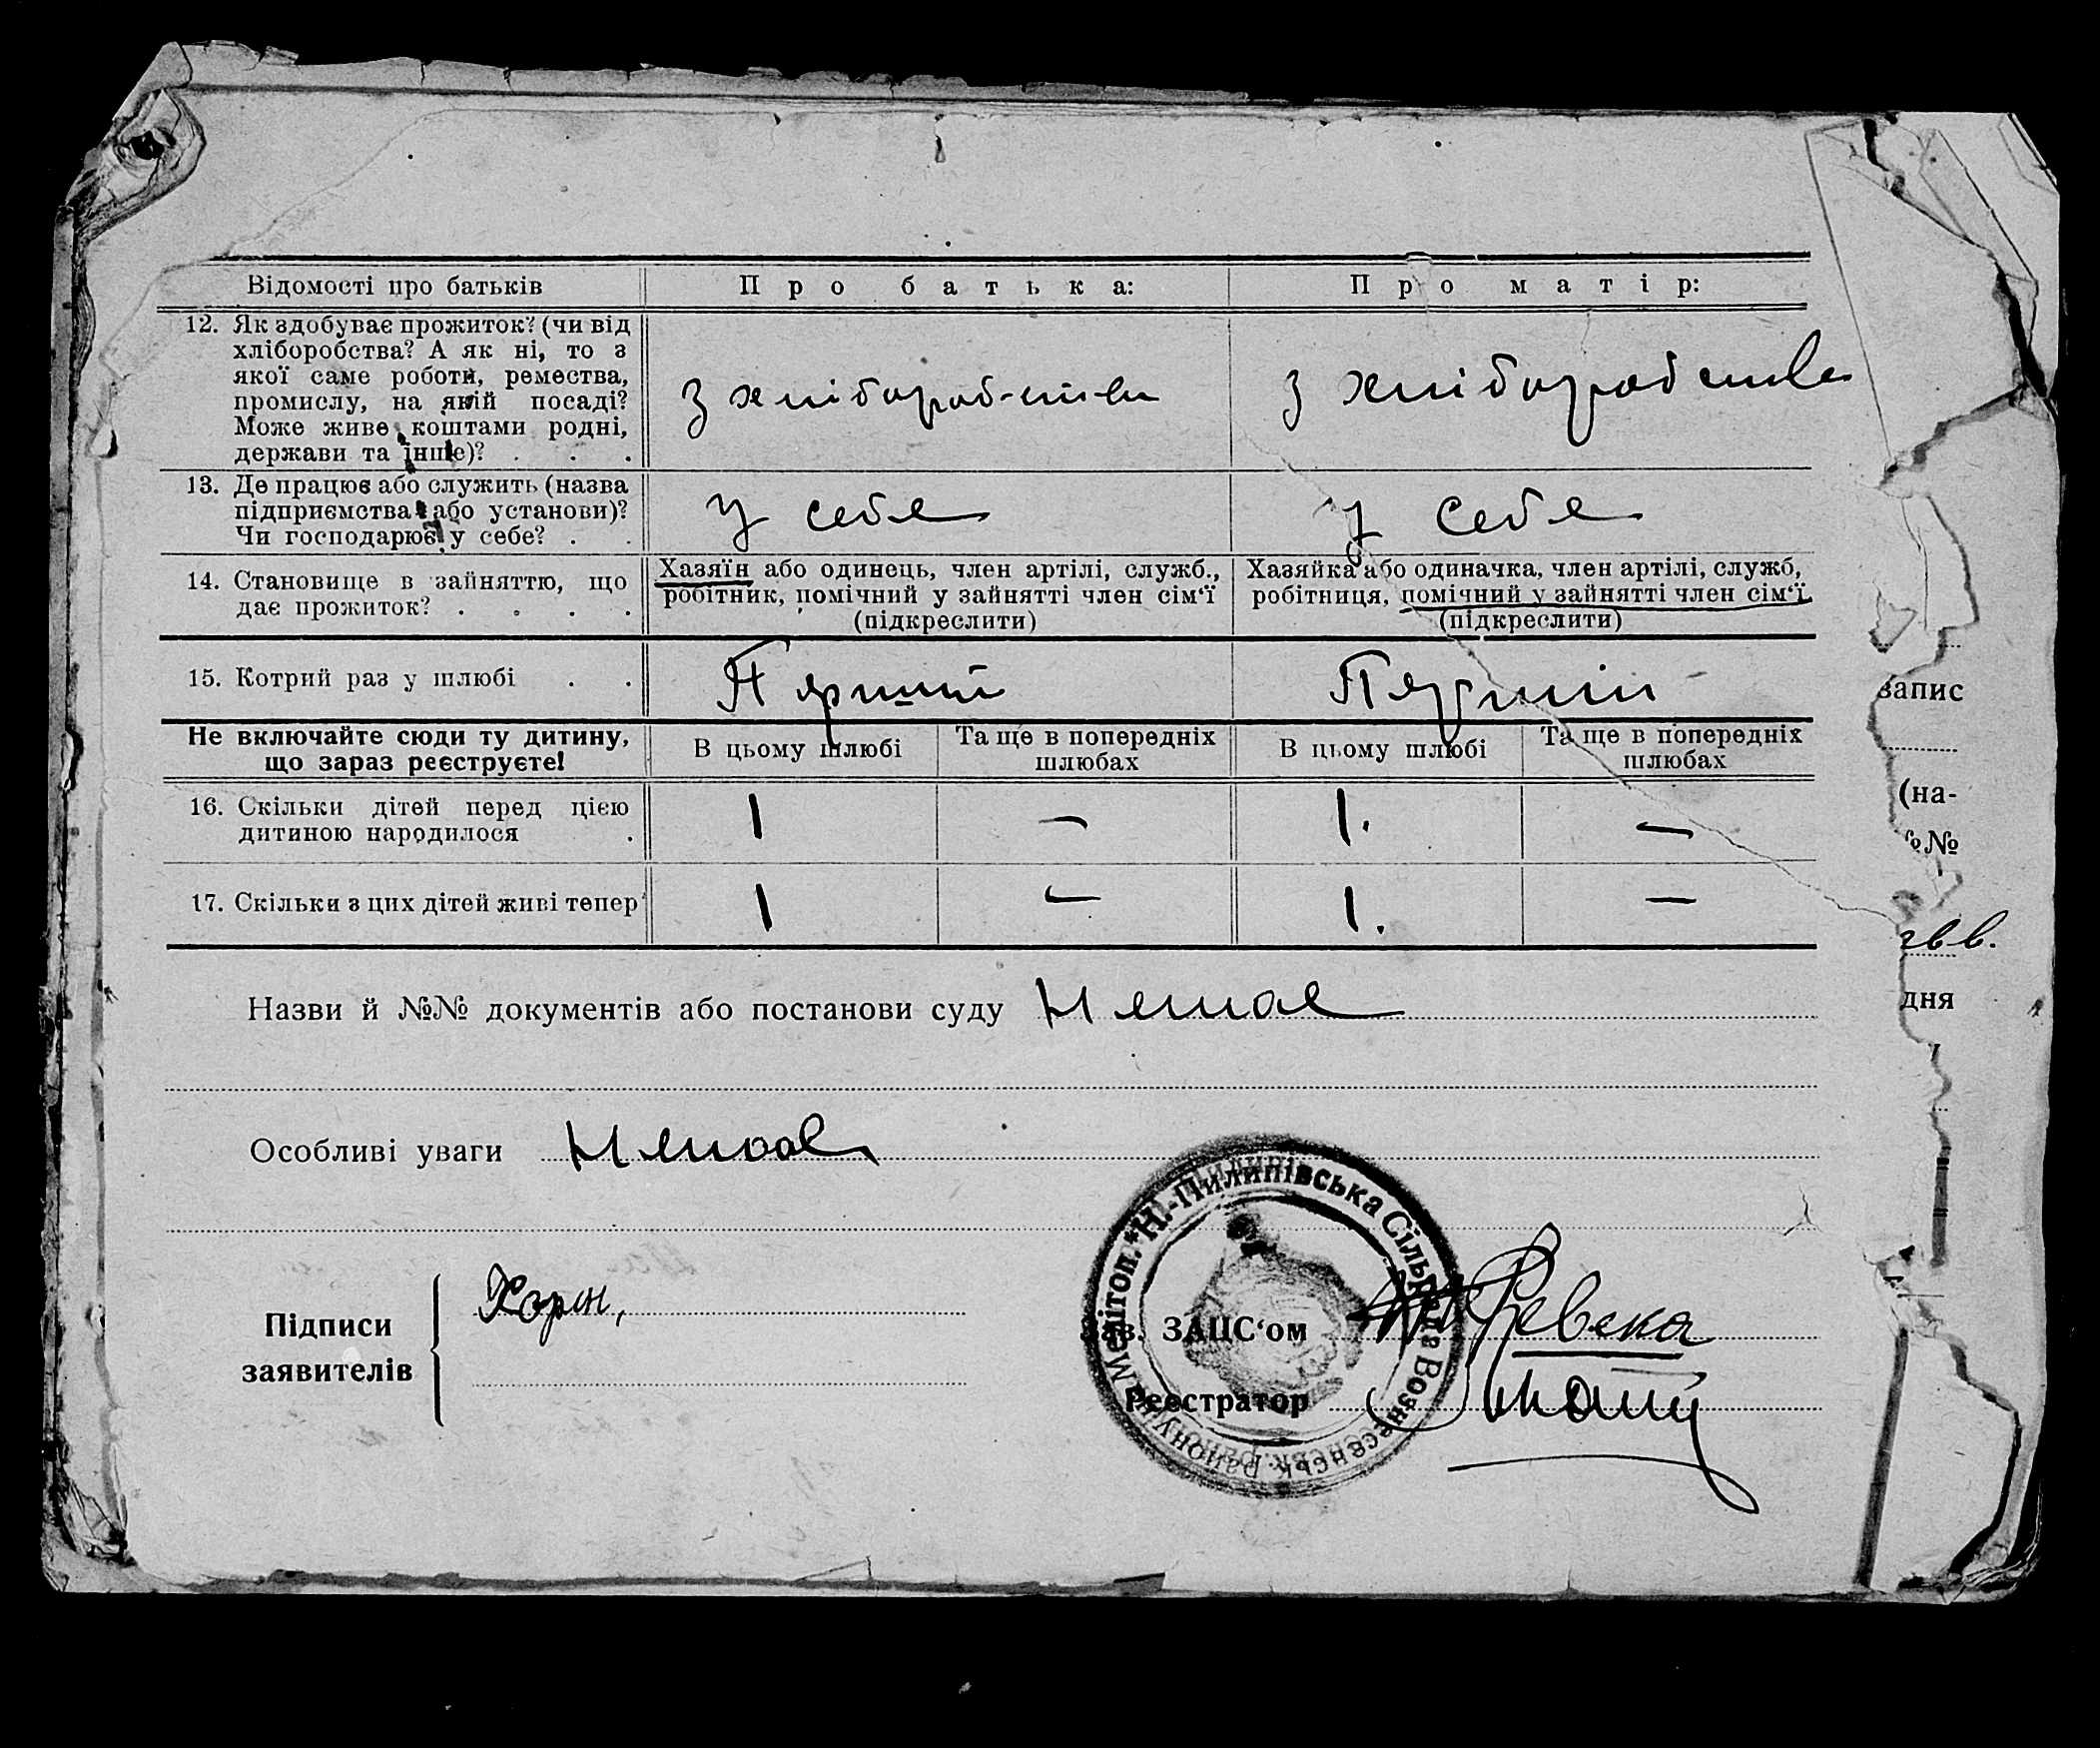 Відомості про батьків
Про батька:
Про матір:
12. Як здобуває прожиток? (чи від
хліборобства? А як ні, то з
якої саме роботи, ремества,
промислу, на якій посаді?
Може живе коштами родні,
держави та інше)? . . .
З хліборобства
З хліборобства
13. Де працює або служить (назва
підприємства або установи)?
Чи господарює у себе? . .
У себе
У себе
14. Становище в зайняттю, що
дає прожиток? . . . .
Хазяїн або одинець, член артілі, служб.,
робітник, помічний у зайнятті член сім‘ї
(підкреслити)
Хазяйка або одиначка, член артілі, служб,
робітниця, помічний у зайнятті член сім‘ї
(підкреслити)
15. Котрий раз у шлюбі . .
Перший
Перший
Не включайте сюди ту дитину,
що зараз реєструєте!
В цьому шлюбі
Та ще в попередніх
шлюбах
В цьому шлюбі
Та ще в попередніх
шлюбах
16. Скільки дітей перед цією
дитиною народилося .
1 — 1. —
17. Скільки з цих дітей живі тепер
1 — 1. —
Назви й №№ документів або постанови суду Немає
Особливі уваги Немає
Підписи
заявителів
Зав. ЗАЦС‘ом
Реєстратор
Н.-Пилипівська Сільрада Вознесенськ. району Мелітоп.
запис
(на-
№№
дня